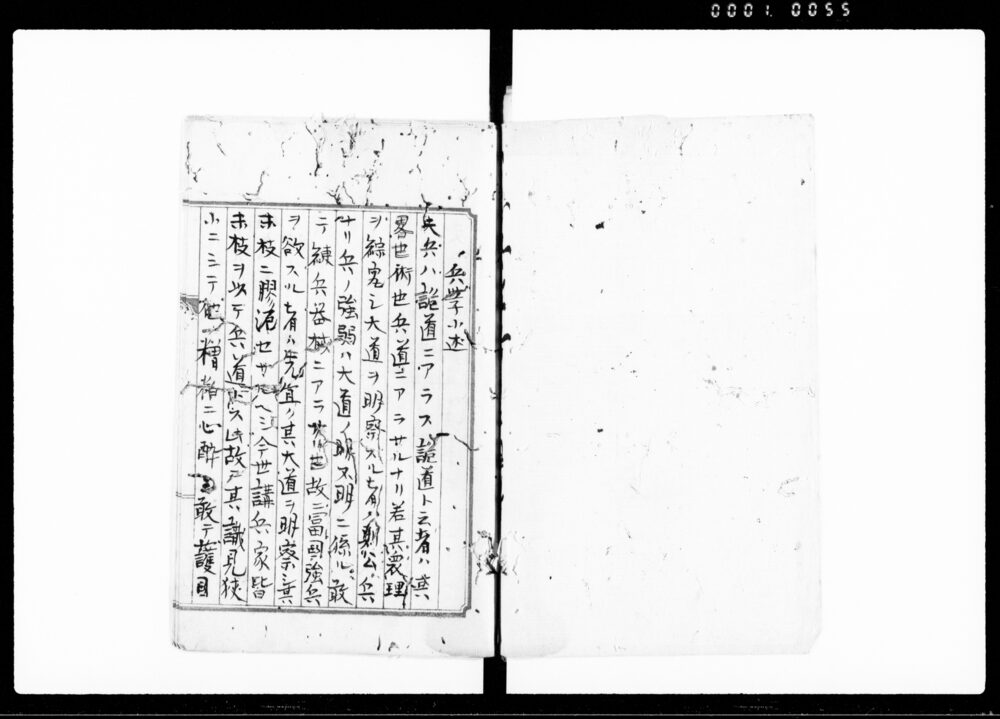 0001. 0055
兵學小述
夫兵ハ詭道ニアラス詭道ト云者ハ其
畧也術也兵道ニアラサルナリ若其
ヲ綜 シ大道ヲ明察スル者ハ 公ノ兵
ナリ兵ノ強弱ハ大道ノ明不明ニ係ル敢
テ練兵器械ニアラサル也故ニ富國強兵
ヲ欲スル者ハ先宜ク其大道ヲ明察シ其
末枝ニ膠泥セサルヘシ今世講兵家皆
末枝ヲ以テ兵道トス此故ニ其識見狹
小ニシテ他ノ糟粕ニ心酔 敢テ護